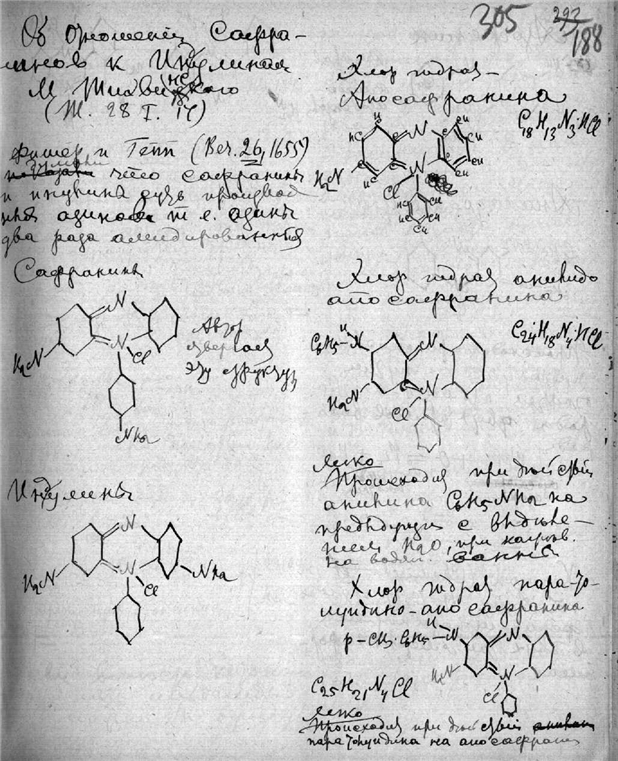 305
292
188
Об отношении Сафра-
нинов к Индулинам
(Ж. 28 I. 17)
Фишер и Гепп (Ber. 26, 1655)
что сафранины
и индулины суть производ
ные одинов т. е. один
два раза амидированные
Сафранины
N
H2N
N
Cl
NH2
Автор
эту структуру
Индулины
N
H2N
N
Cl
NH2
Хлор гидрат
Апосафранина
C18H13N3·HCl
N
H2N
N
Cl
Хлор гидрат анилидо
апосафранина
C6H5-N
H
C24H18N4·HCl
N
H2N
N
Cl
легко
Происходит при действии
анилина C6H5NH2 на
предыдущий с выделе-
нием H2O при нагрев.
на водян. бане
Хлор гидрат пара-то-
луидино-апосафранина
p-CH3·C6H5-N
H
N
H2N
N
Cl
C25H21N4Cl
легко
Происходит при действии
паратолуидина на апосафранин